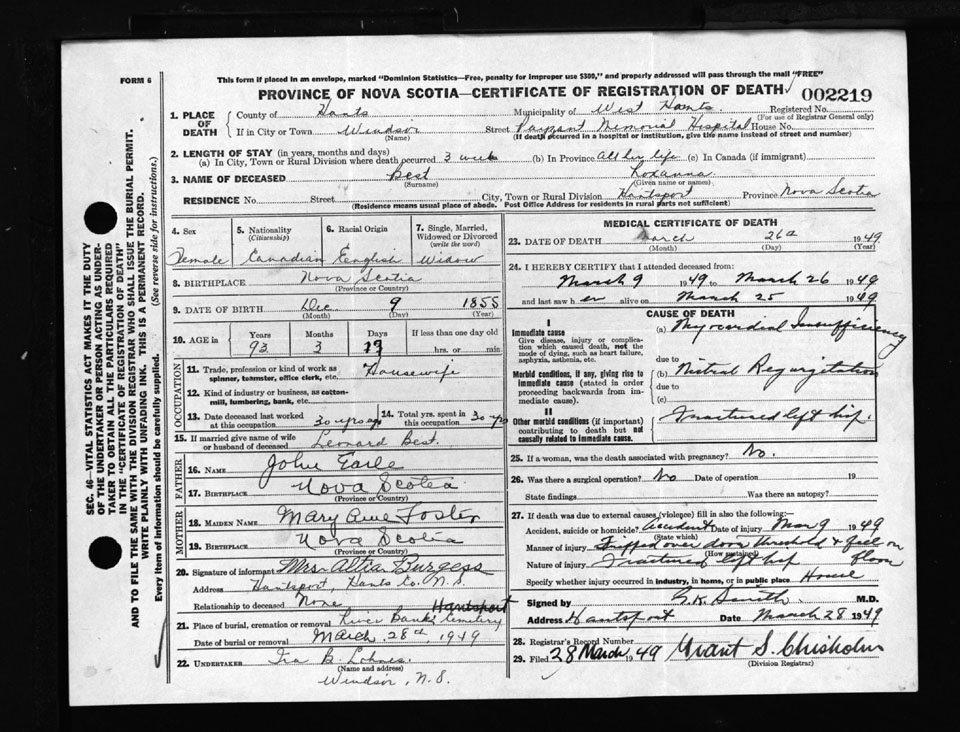 FORM 6
This form if placed in an envelope, marked "Dominion Statistics—Free, penalty for improper use $300," and properly addressed will pass through the mail "FREE"
PROVINCE OF NOVA SCOTIA—CERTIFICATE OF REGISTRATION OF DEATH
002219
SEC. 46—VITAL STATISTICS ACT MAKES IT THE DUTY
OF THE UNDERTAKER OR PERSON ACTING AS UNDER-
TAKER TO OBTAIN ALL THE PARTICULARS REQUIRED
IN THE "CERTIFICATE OF REGISTRATION OF DEATH"
AND TO FILE THE SAME WITH THE DIVISION REGISTRAR WHO SHALL ISSUE THE BURIAL PERMIT.
WRITE PLAINLY WITH UNFADING INK. THIS IS A PERMANENT RECORD.
Every item of information should be carefully supplied. (See reverse side for instructions.)
1. PLACE OF DEATH
County of Hants Municipality of West Hants Registered No.
(For use of Registrar General only)
If in City or Town Windsor Street Payzant Memorial Hospital House No.
(Name) (If death occurred in a hospital or institution, give the name instead of street and number)
2. LENGTH OF STAY (in years, months and days)
(a) In City, Town or Rural Division where death occurred 3 week (b) In Province All her life (c) In Canada (if immigrant)
3. NAME OF DECEASED Best Roxanna
(Surname) (Given name or names)
RESIDENCE No. Street City, Town or Rural Division Hantsport Province Nova Scotia
(Residence means usual place of abode. Post Office Address for residents in rural parts not sufficient)
4. Sex 5. Nationality (Citizenship) 6. Racial Origin 7. Single, Married, Widowed or Divorced (write the word)
Female Canadian English Widow
8. BIRTHPLACE Nova Scotia
(Province or Country)
9. DATE OF BIRTH Dec 9 1855
(Month) (Day) (Year)
10. AGE in Years Months Days If less than one day old
93 3 17 hrs. or min.
OCCUPATION
11. Trade, profession or kind of work as spinner, teamster, office clerk, etc. Housewife
12. Kind of industry or business, as cotton-mill, lumbering, bank, etc.
13. Date deceased last worked at this occupation 30 yrs ago 14. Total yrs. spent in this occupation 30 yrs
15. If married give name of wife or husband of deceased Leonard Best.
FATHER
16. NAME John Earle
17. BIRTHPLACE Nova Scotia
(Province or Country)
MOTHER
18. MAIDEN NAME Mary Ann Foster
19. BIRTHPLACE Nova Scotia
(Province or Country)
20. Signature of informant Mrs. Altia Burgess
Address Hantsport, Hants Co. N.S.
Relationship to deceased None
21. Place of burial, cremation or removal River Bank Cemetery Hantsport
Date of burial or removal March 28th 1949
22. UNDERTAKER Ira B. Lohnes
(Name and address)
Windsor, N.S.
MEDICAL CERTIFICATE OF DEATH
23. DATE OF DEATH March 26th 1949
(Month) (Day)
24. I HEREBY CERTIFY that I attended deceased from:
March 9 1949 to March 26 1949
and last saw her alive on March 25 1949
CAUSE OF DEATH
I
Immediate cause
Give disease, injury or complication which caused death, not the mode of dying, such as heart failure, asphyxia, asthenia, etc.
(a) Myocardial Insufficiency
due to
Morbid conditions, if any, giving rise to immediate cause (stated in order proceeding backwards from immediate cause).
(b) Mitral Regurgitation
due to
(c)
II
Other morbid conditions (if important) contributing to death but not causally related to immediate cause.
Fractured left hip.
25. If a woman, was the death associated with pregnancy? No.
26. Was there a surgical operation? No Date of operation 19
State findings Was there an autopsy?
27. If death was due to external causes (violence) fill in also the following:
Accident, suicide or homicide? Accident Date of injury Mar 9 1949
(State which)
Manner of injury Tripped over door threshold & feel on floor
(How sustained)
Nature of injury Fractured left hip
Specify whether injury occurred in industry, in home, or in public place House
Signed by G.K. Smith M.D.
Address Hantsport Date March 28 1949
28. Registrar's Record Number
29. Filed 28 March 1949 Grant S. Chisholm
(Division Registrar)